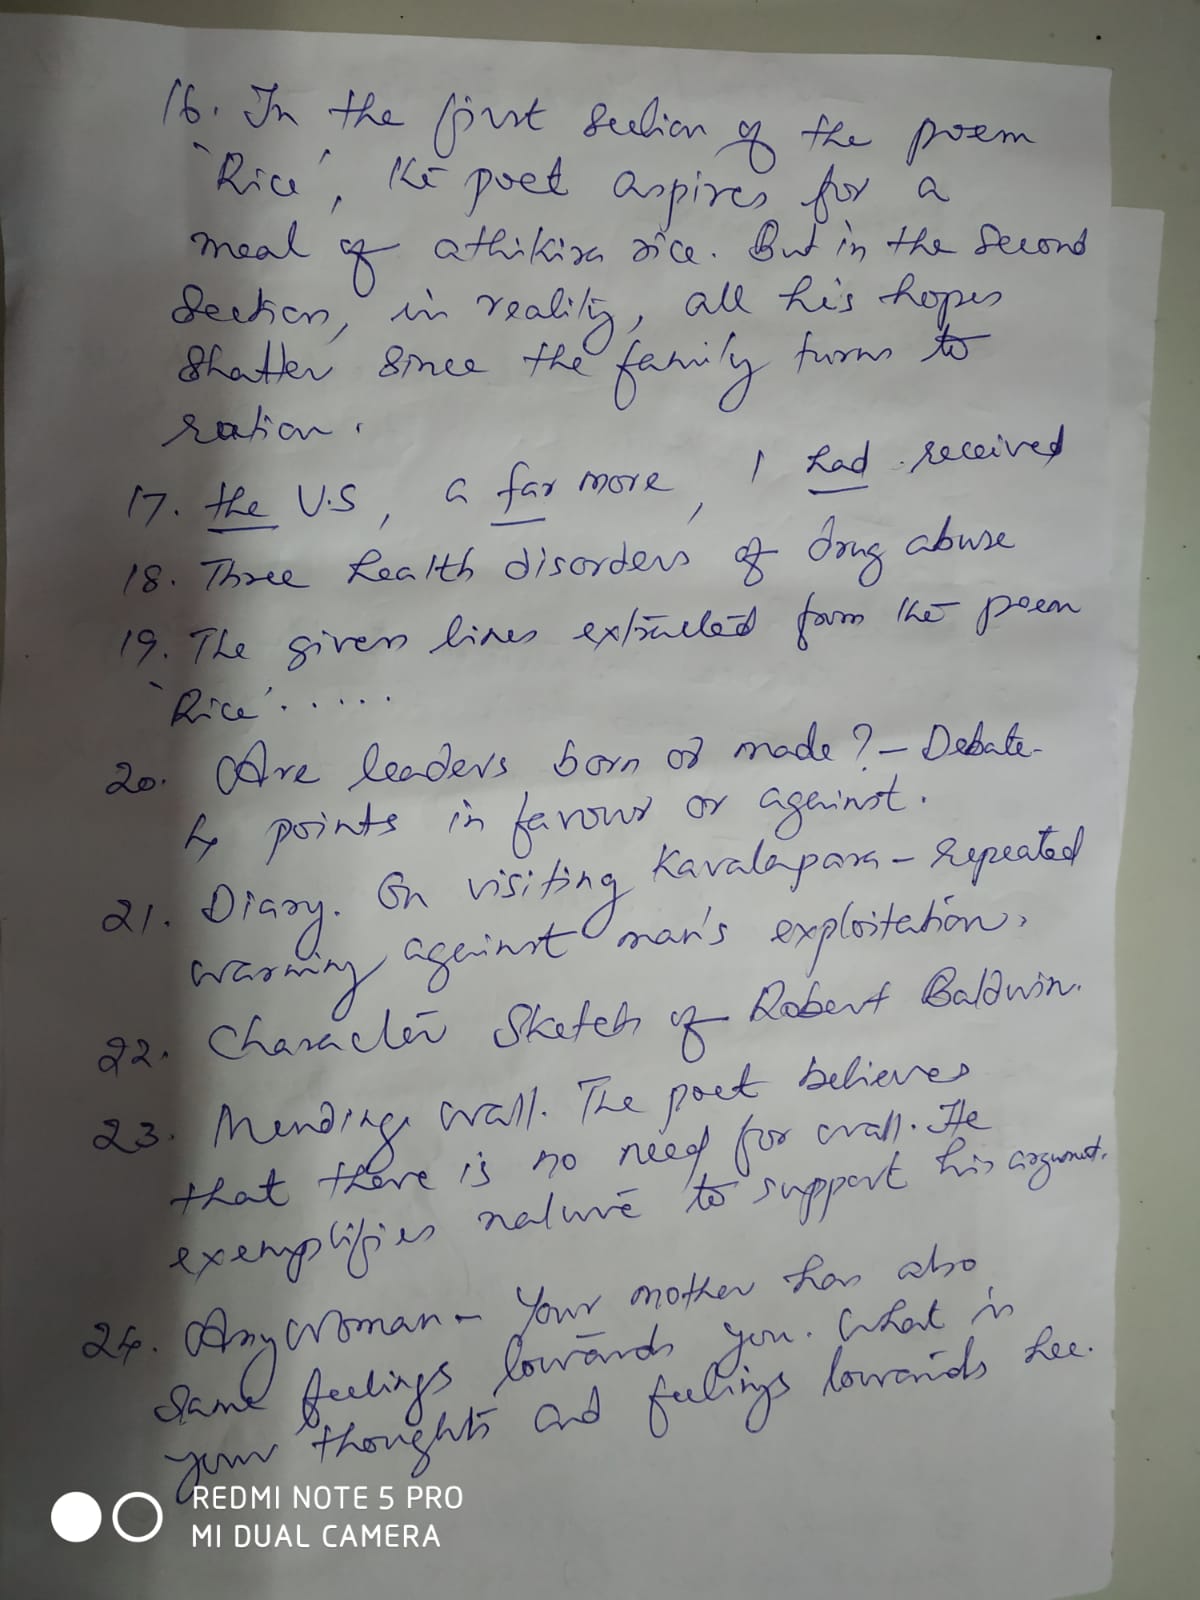 16. In the first section of the poem
'Rice', the poet aspires for a
meal of athikira rice. But in the second
section, in reality, all his hopes
shatter since the family turns to
ration.
17. the U.S, a far more, I had received
18. Three health disorders of drug abuse
19. The given lines extracted from the poem
'Rice'.....
20. Are leaders born or made? - Debate-
4 points in favour or against.
21. Diary. On visiting Kavalapara - repeated
warning against man's exploitation.
22. Character Sketch of Robert Baldwin.
23. Mending Wall. The poet believes
that there is no need for wall. He
exemplifies nature to support his argument.
24. Any Woman - Your mother has also
same feelings towards you. What is
your thoughts and feelings towards her.
REDMI NOTE 5 PRO
MI DUAL CAMERA